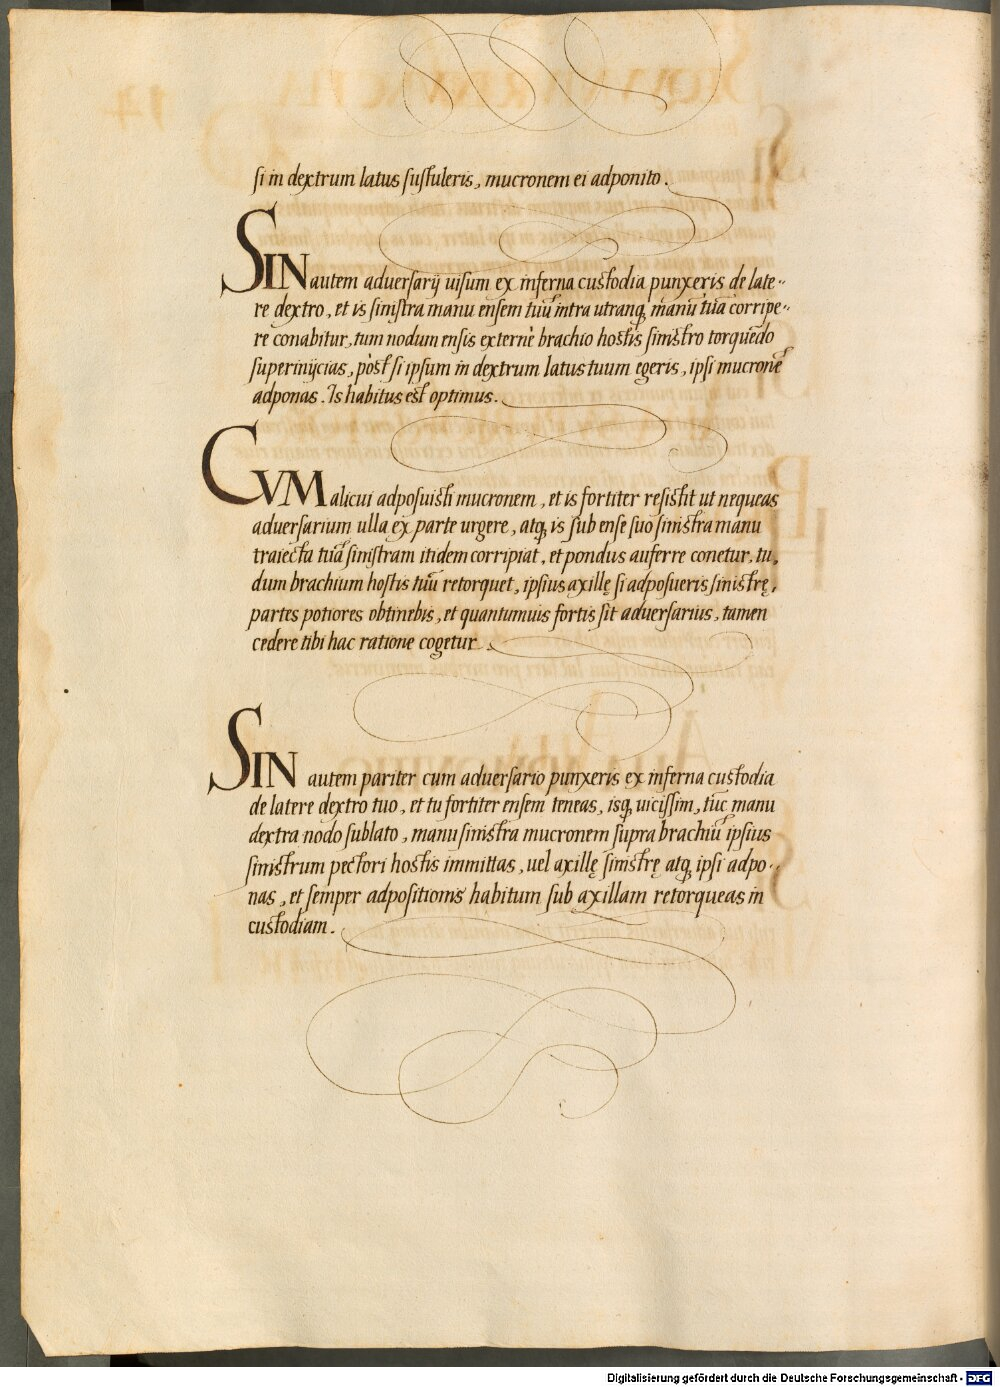 si in dextrum latus sustuleris, mucronem ei adponito.
SIN autem aduersarij uisum ex inferna custodia punxeris de late-
re dextro, et is sinistra manu ensem tuū intra utranq; manū tuā corripe-
re conabitur, tum nodum ensis externè brachio hostis sinistro torquēdo
superinijcias, pòst si ipsum in dextrum latus tuum egeris, ipsi mucronē
adponas. Is habitus est optimus.
CVM alicui adposuisti mucronem, et is fortiter resistit ut nequeas
aduersarium ulla ex parte urgere, atq; is sub ense suo sinistra manu
traiecta tuā sinistram itidem corripiat, et pondus auferre conetur, tu,
dum brachium hostis tuū retorquet, ipsius axillę si adposueris sinistrę,
partes potiores obtinebis, et quantumuis fortis sit aduersarius, tamen
cedere tibi hac ratione cogetur.
SIN autem pariter cum aduersario punxeris ex inferna custodia
de latere dextro tuo, et tu fortiter ensem teneas, isq; uicissim, tūc manu
dextra nodo sublato, manu sinistra mucronem supra brachiū ipsius
sinistrum pectori hostis immittas, uel axillę sinistrę atq; ipsi adpo-
nas, et semper adpositionis habitum sub axillam retorqueas in
custodiam.
Digitalisierung gefördert durch die Deutsche Forschungsgemeinschaft - DFG